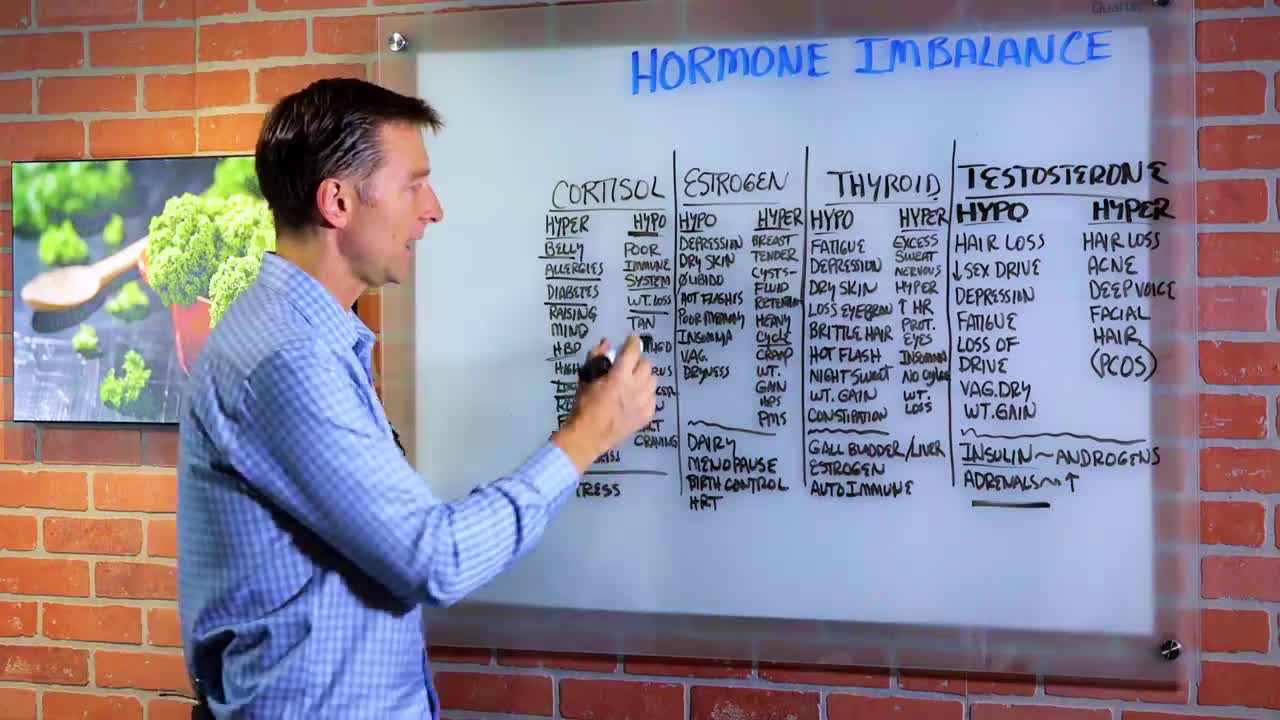 Quartet
HORMONE IMBALANCE
CORTISOL
HYPER
BELLY
ALLERGIES
DIABETES
RAISING
MIND
HBP
HYPO
POOR
IMMUNE
SYSTEM
WT. LOSS
TAN
CRAVING
ESTROGEN
HYPO
DEPRESSION
DRY SKIN
ØLIBIDO
HOT FLASHES
POOR MEMORY
INSOMNIA
VAG.
DRYNESS
HYPER
BREAST
TENDER
CYSTS-
FLUID
RETENTION
HEAVY
CYCLE
CRAMP
WT.
GAIN
HIPS
PMS
DAIRY
MENOPAUSE
BIRTH CONTROL
HRT
THYROID
HYPO
FATIGUE
DEPRESSION
DRY SKIN
LOSS EYEBROW
BRITTLE HAIR
HOT FLASH
NIGHT SWEAT
WT. GAIN
CONSTIPATION
HYPER
EXCESS
SWEAT
NERVOUS
HYPER
↑ HR
PROT.
EYES
INSOMNIA
NO CYCLE
WT.
LOSS
GALL BLADDER/LIVER
ESTROGEN
AUTOIMMUNE
TESTOSTERONE
HYPO
HAIR LOSS
↓SEX DRIVE
DEPRESSION
FATIGUE
LOSS OF
DRIVE
VAG. DRY
WT. GAIN
HYPER
HAIR LOSS
ACNE
DEEP VOICE
FACIAL
HAIR
(PCOS)
INSULIN~ANDROGENS
ADRENALS~↑